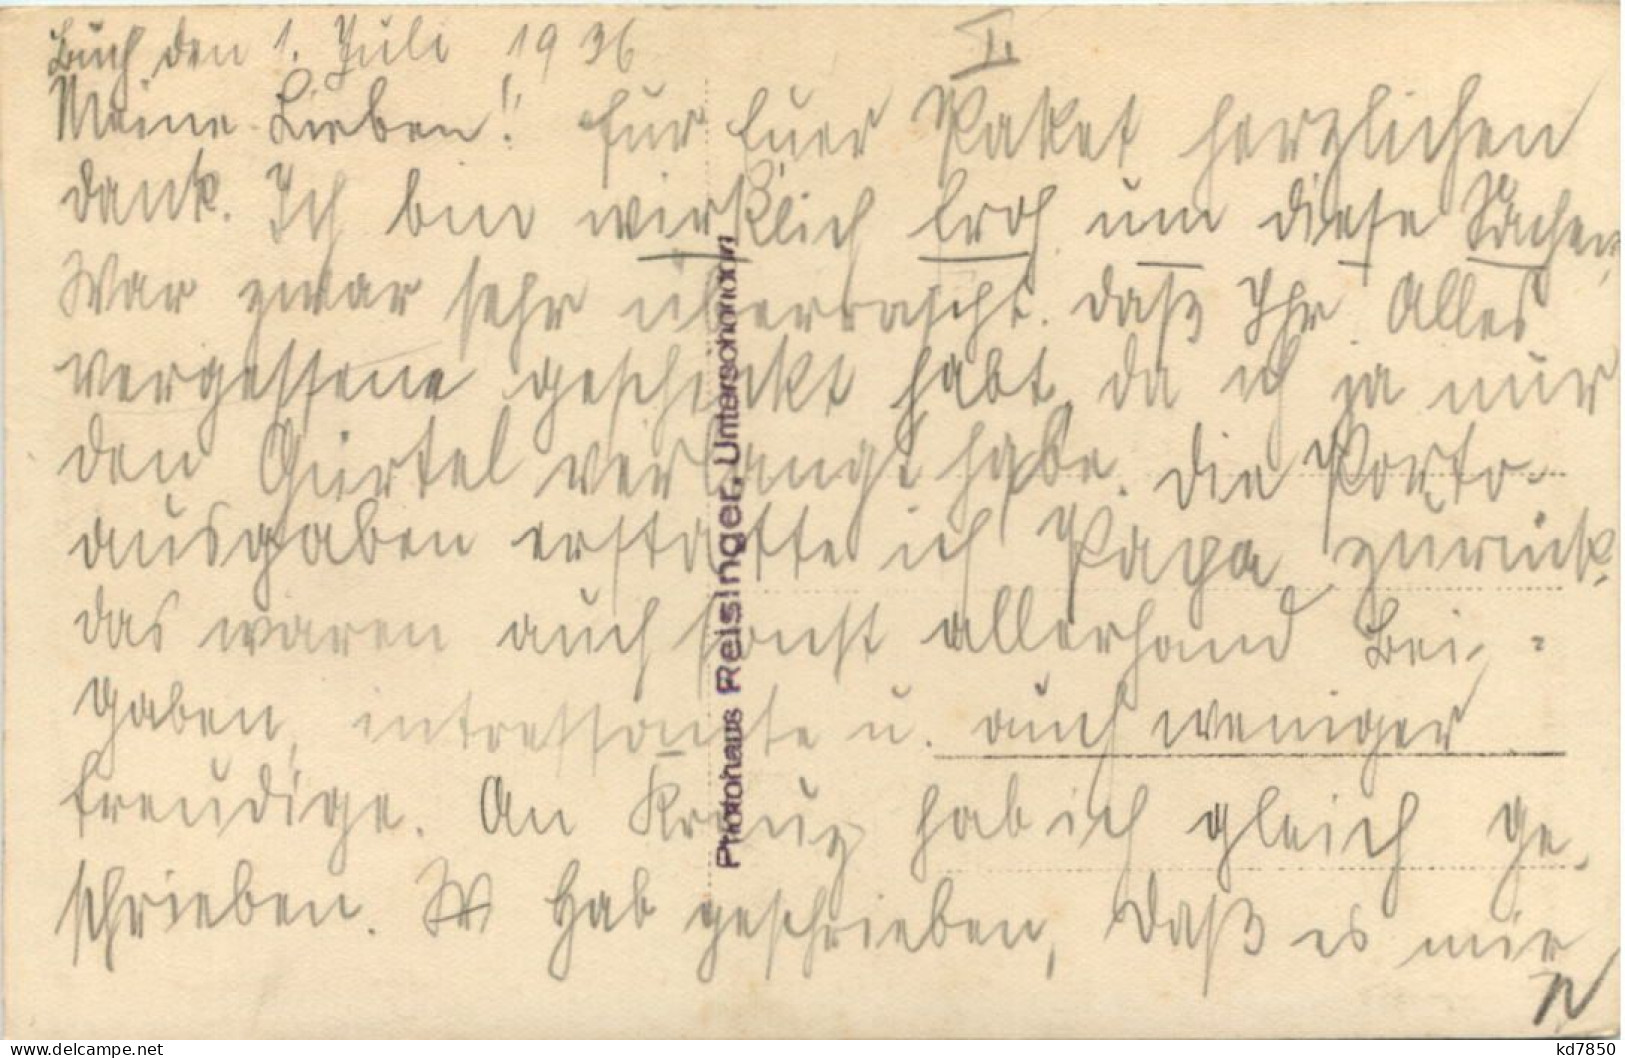 Buch den 1. Juli 1936
I.
Meine Lieben! für Euer Paket herzlichen
dank. Ich bin wirklich froh um diese Sachen,
War zwar sehr überrascht. daß Ihr Alles
vergessene geschickt habt, da ich ja nur
den Gürtel verlangt habe. die Porto-
ausgaben erstatte ich Papa zurück.
das waren auch sonst allerhand Bei-
gaben, intressante u. auch weniger
freudige. An Kreuz hab ich gleich ge-
schrieben. Hab geschrieben, daß es mir
Photohaus Reisinger, Unterschondorf
kd7850